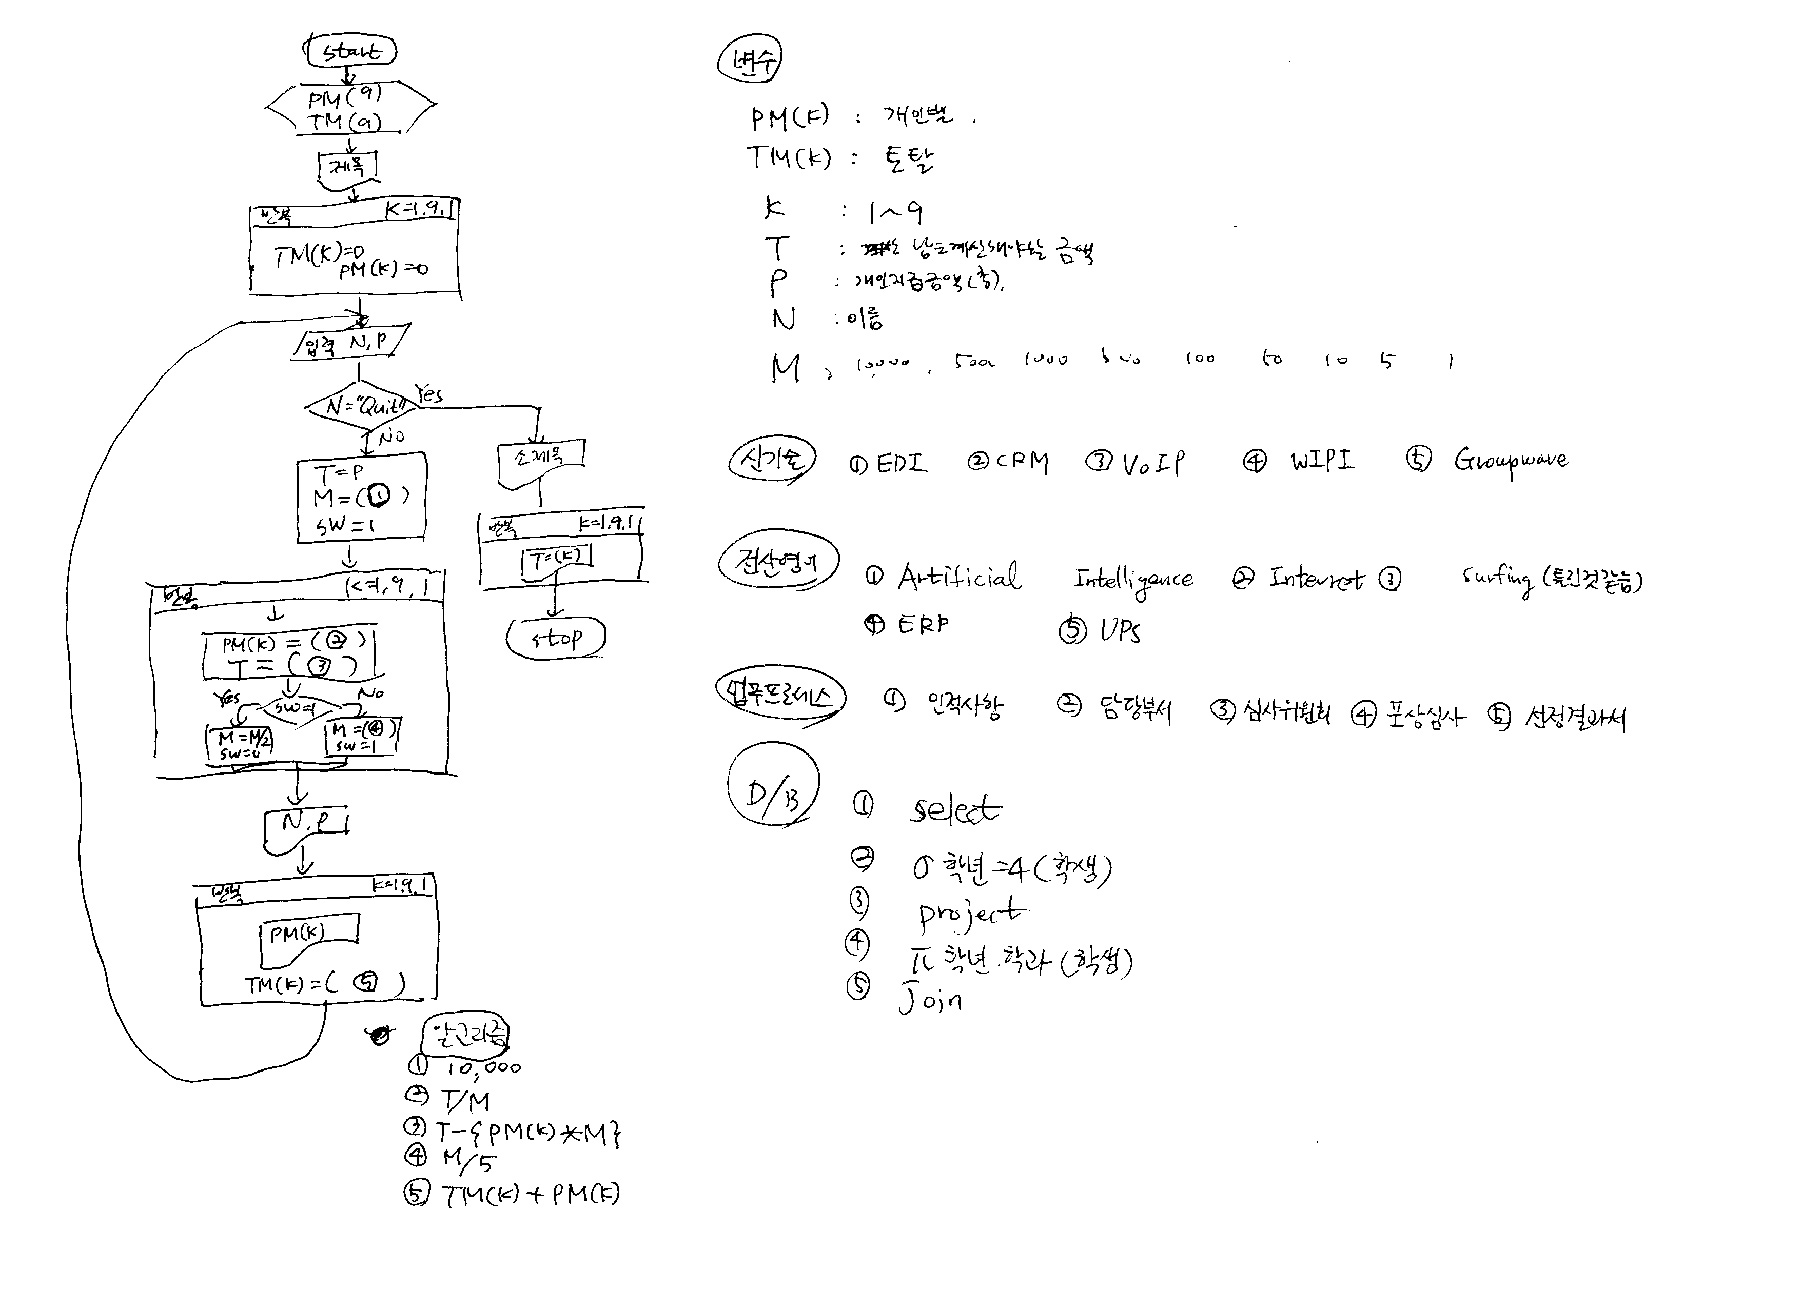 start
PM(9)
TM(9)
제목
반복 K=1,9,1
TM(K)=0
PM(K)=0
입력 N,P
N="Quit"
Yes
No
T=P
M=(①)
SW=1
소제목
반복 K=1,9,1
T=(K)
stop
반복 K=1,9,1
PM(K)=(②)
T=(③)
Yes
SW=1
No
M=M/2
SW=0
M=(④)
SW=1
N.P
반복 K=1,9,1
PM(K)
TM(K)=(⑤)
알고리즘
① 10,000
② T/M
③ T-{PM(K)*M}
④ M/5
⑤ TM(K)+PM(K)
변수
PM(K) : 개인별.
TM(K) : 토탈
K : 1~9
T : 남도계산해야할 금액
P : 개인지급금액(총).
N : 이름
M , 10,000 . 500 1000 500 100 50 10 5 1
신기술 ① EDI ② CRM ③ VoIP ④ WIPI ⑤ Groupwave
전산영어 ① Artificial Intelligence ② Internet ③ Surfing (틀린것같음)
④ ERP ⑤ UPS
업무프로세스 ① 인적사항 ② 담당부서 ③ 심사위원회 ④ 포상심사 ⑤ 선정결과서
D/B ① select
② σ 학년=4(학생)
③ project
④ π 학년.학과(학생)
⑤ Join